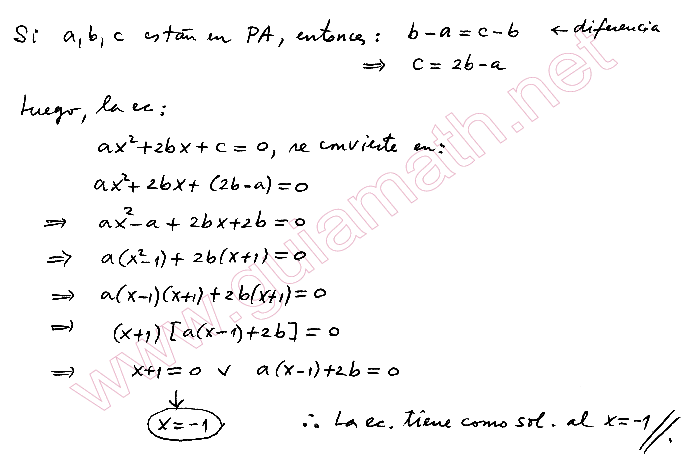 Si a, b, c están en PA, entonces: b-a = c-b ← diferencia
⇒ c = 2b-a
Luego, la ec:
ax²+2bx+c = 0, se convierte en:
ax²+2bx+(2b-a)=0
⇒ ax²-a+2bx+2b=0
⇒ a(x²-1)+2b(x+1)=0
⇒ a(x-1)(x+1)+2b(x+1)=0
⇒ (x+1)[a(x-1)+2b]=0
⇒ x+1=0 ∨ a(x-1)+2b=0
↓
x=-1 ∴ La ec. tiene como sol. al x=-1//.
www.guiamath.net